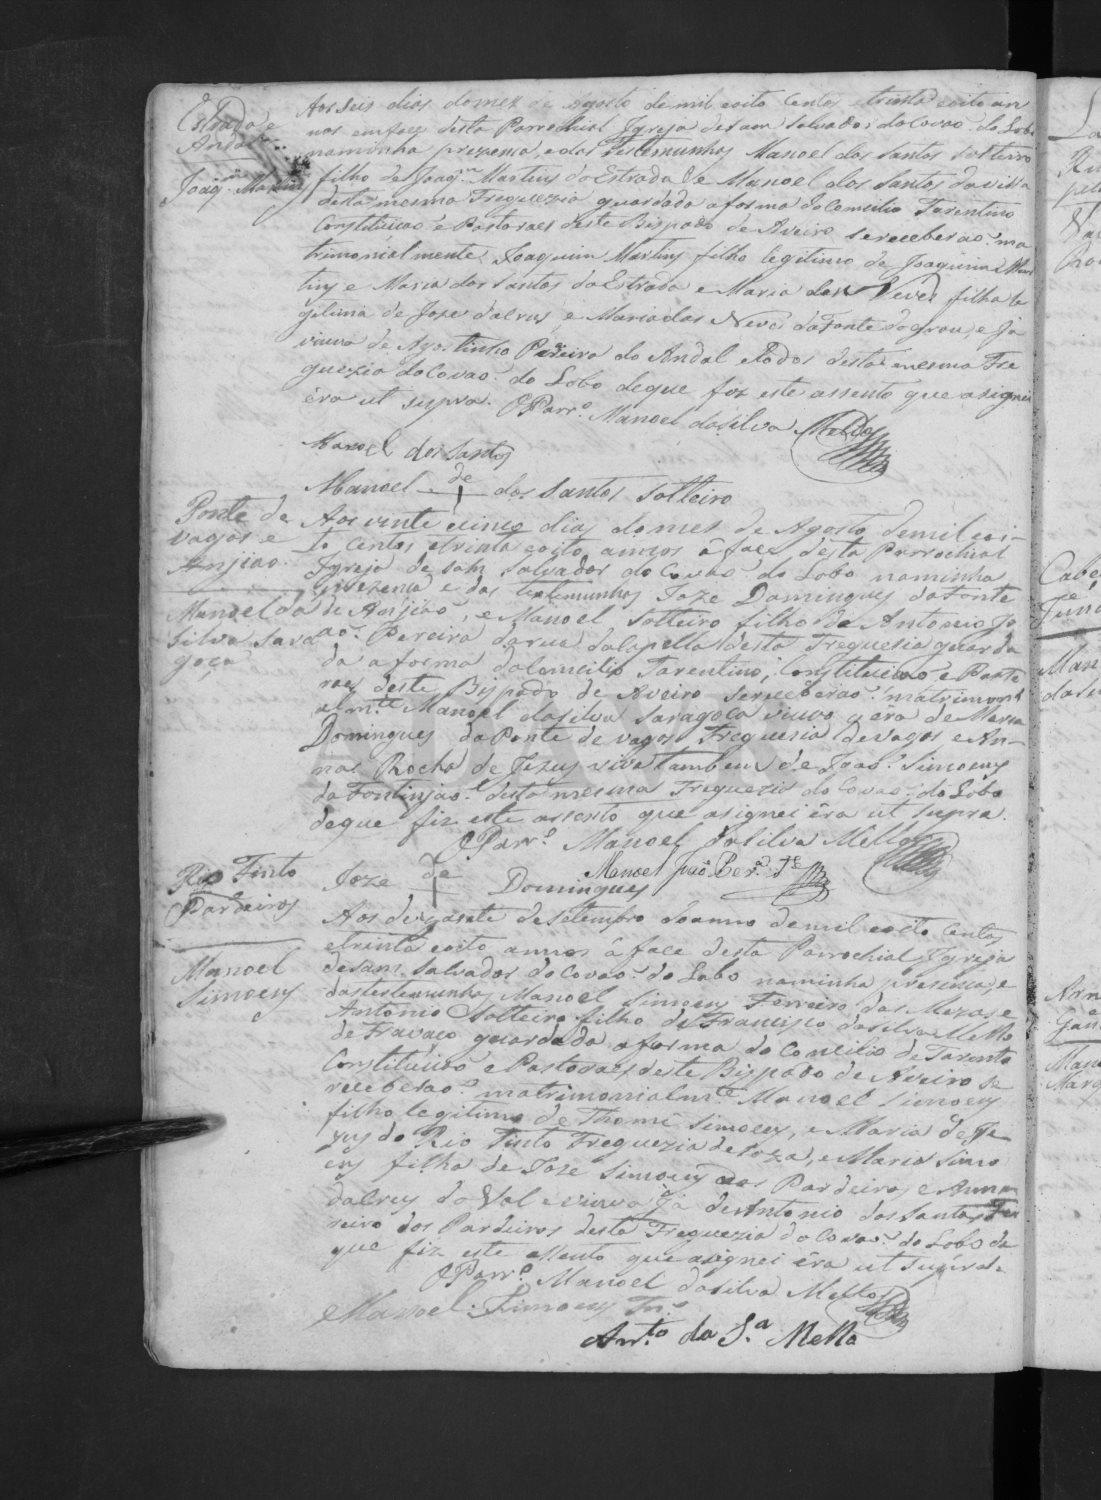 Estrada e
Andal
Joaqm Martins
Aos seis dias do mez de Agosto de mil eoito Centos etrinta eoito an
nos em face desta Parrochial Igreja de sam Salvador do Covaõ do Lobo
naminha prezensa, edas Testemunhas Manoel dos Santos Solteiro
filho de Joaqm Martins da Estrada e de Manoel dos Santos da villa
desta mesma Freguezia guardada aforma do Comcilio Tarentino
Constituicaõ e Pastoraes deste Bispado de Aveiro sereceberaõ ma
trimonialmente Joaquim Martins filho legitimo de Joaquim Mar
tins e Maria dos Santos da Estrada e Maria das Neves filha le
gitima de Joze da Crus, e Maria das Neves da Fonte do grou, e ja
viuva de Agostinho Pereira do Andal e todos desta mesma Fre
guezia do Covaõ do Lobo deque fiz este assento que asignei
éra ut supra. O Parro Manoel da Silva Mello
Manoel dos Santos
Manoel de dos Santos Solteiro
Ponte de
vagos e
Anjiaõ
Manoel da
Silva Sara
goça
Aos vinte ecinco dias do mez de Agosto de mil eoi-
to Centos etrinta eoito annos á face desta Parrochial
Igreja de sam Salvador do Covaõ do Lobo naminha
prezensa e das testemunhas Joze Domingues da Fonte
de Anjiaõ, e Manoel Solteiro filho de Antonio Jo
aõ Pereira da rua da Capella desta Freguesia guarda
da a forma do Comcilio Tarentino, Constituicaõ e Pasto
raes deste Bispado de Aveiro sereceberaõ matrimoni
almte Manoel da Silva Saragoça viuvo q éra de Maria
Domingues da Ponte de vagos Freguezia de vagos, e An-
na Rocha de Jezus viva tambem de Joaõ Simoens
da Fontinjaõ desta mesma Freguezia do Covaõ do Lobo
deque fiz este assento que asignei éra ut supra.
O Parro Manoel da Silva Mello
Manoel Joaõ Pera
Joze de Domingues
Rio Tinto
Pardeiros
Manoel
Simoens
Aos dezasete de Setembro do anno de mil eoito Centos
etrinta eoito annos á face desta Parrochial Igreja
de sam Salvador do Covaõ do Lobo naminha presensa, e
das testemunhas Manoel Simoens Ferreiro das Mezas e
Antonio Solteiro filho de Francisco da Silva Mello
de Fravaco guardada a forma do Concilio de Tarento
Constituicaõ e Pastoraes deste Bispado de Aveiro se
receberaõ matrimonialmte Manoel Simoens
filho legitimo de Thomé Simoens, e Maria de Je-
zus do Rio Tinto Freguezia de Soza, e Maria Simo
ens filha de Joze Simoens dos Pardeiros e Anna
da Crus do Val e viuva ja de Antonio dos Santos Fer
reiro dos Pardeiros desta Freguezia do Covaõ do Lobo de
que fiz este assento que asignei éra ut supra.
O Parro Manoel da Silva Mello
Manoel Simoens
Anto da Sa Mello